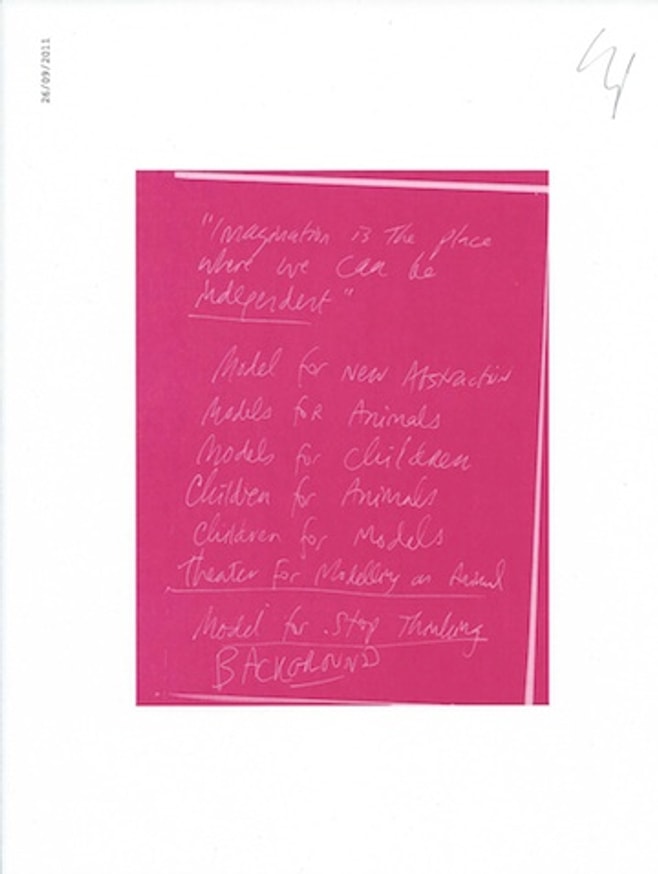 26/09/2011
"Imagination is The place
where we can be
independent"
Model for New Abstraction
Models foR Animals
Models for children
Children for Animals
Children for Models
Theater for Modelling an Animal
Model for Stop Thinking
BACKGROUND